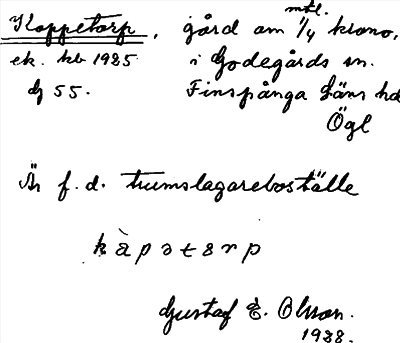 Koppetorp, gård om 1/4 mtl. krono,
ek. kb 1935 i Godegårds sn.
dj 55. Finspånga Läns hd
Ögl
Är f. d. trumslagareboställe
kàpətɔrp
Gustaf E. Olsson.
1938.